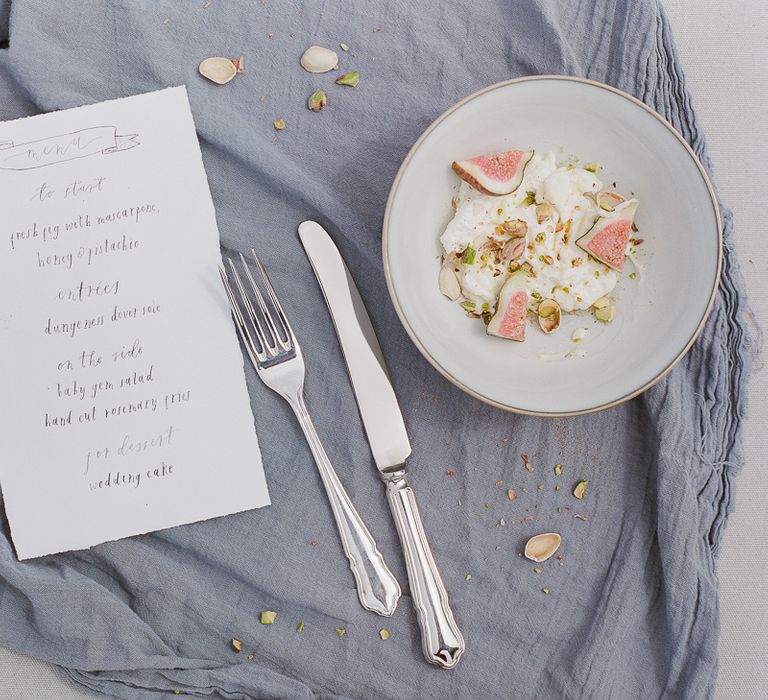 menu
to start
fresh fig with mascarpone,
honey & pistachio
entrées
dungeness dover sole
on the side
baby gem salad
hand cut rosemary fries
for dessert
wedding cake